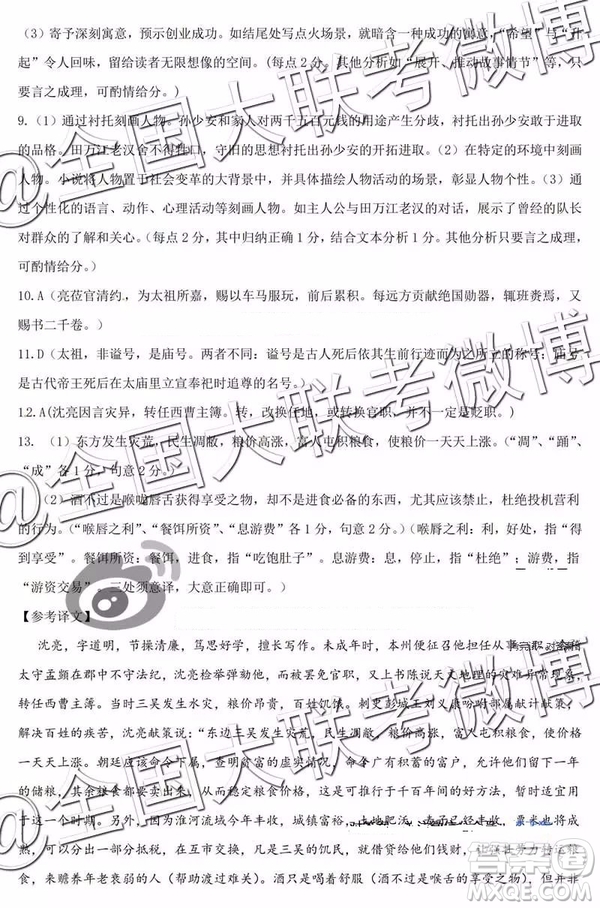 （3）寄予深刻寓意，预示创业成功。如结尾处写点火场景，就暗含一种成功的寓意，“希望”与“升
起”令人回味，留给读者无限想像的空间。（每点2分。其他分析如“展开、推动故事情节”等，只
要言之成理，可酌情给分。）
9.（1）通过衬托刻画人物。孙少安和家人对两千五百元钱的用途产生分歧，衬托出孙少安敢于进取
的品格。田万江老汉舍不得牲口，守旧的思想衬托出孙少安的开拓进取。（2）在特定的环境中刻画
人物。小说将人物置于社会变革的大背景中，特别是描绘人物活动的场景，彰显个性。（3）通
过个性化的语言、动作、心理活动等刻画人物。如主人公与田万江老汉的对话，展示了曾经的队长
对群众的了解和关心。（每点2分，其中归纳正确1分，结合文本分析1分。其他分析只要言之成理，
可酌情给分。）
10.A（亮莅官清约，为太祖所嘉，赐以车马服玩，前后累积。每远方贡献绝国勋器，辄班赉焉，又
赐书二千卷。）
11.D（太祖，非谥号，是庙号。两者不同：谥号是古人死后依其生前行迹而为之所立的称号；庙号
是古代帝王死后在太庙里立宣奉祀时追尊的名号。）
12.A(沈亮因言灾异，转任西曹主簿。转，改换任地，或转换官职，并不一定是贬职。）
13.（1）东方发生灾荒，民生凋敝，粮价高涨，富人屯积粮食，使粮价一天天上涨。（“凋”、“踊”、
“成”各1分，句意2分。）
（2）酒不过是喉咙唇舌获得享受之物，却不是进食必备的东西，尤其应该禁止，杜绝投机营利
的行为。（“喉唇之利”、“餐饵所资”、“息游费”各1分，句意2分。喉唇之利：之，的，指“得
到享受”。餐饵所资：餐饵，进食，指“吃饱肚子”。息游费：息，停止，指“杜绝”；游费，指
“游资交易”。三处须意译，大意正确即可。）
【参考译文】
沈亮，字道明，节操清廉，笃思好学，擅长写作。未成年时，本州便征召他担任从事
太守孟顗在郡中不守法纪，沈亮检举弹劾他，而被罢免官职，又上书陈说天文地理的灾难异常现象，
转任西曹主簿。当时三吴发生水灾，粮价昂贵，百姓饥荒。刺史彭城王刘义康吩咐部属献计献策，
解决百姓的疾苦，沈亮献策说：“东边灾荒，百姓凋敝，粮价飞涨，富人屯积粮食，使价格
一天天上涨。朝廷能下命令，查明财富的虚实，命令积谷广有的富户，允许他们留下一年
的储粮，其余粮食都要卖出来，从而稳定粮食价格，这就是所谓的长久的好方法，暂时可适用
于暂时的情况。又因为淮河流域今年丰收，城镇富裕，土地肥沃，麦子已经丰收，
熟，可以分出一部分抵税，在互市交易，凡是三吴的饥民，就借贷给他们钱财，让强壮劳力搬运粮
食，来赡养年老衰弱的人（帮助渡过难关）。酒只是喝着舒服（酒不过是喉舌的享受之物），但并非